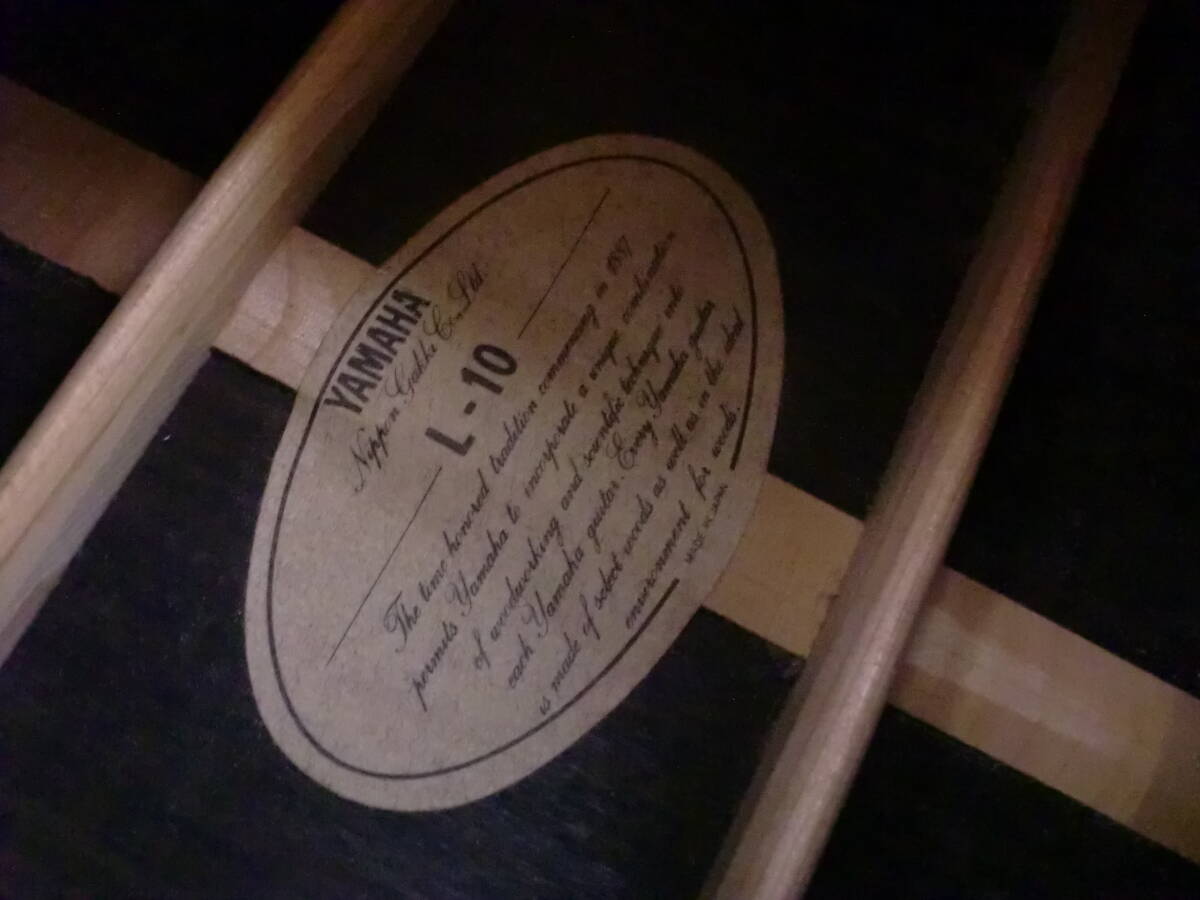 YAMAHA
Nippon Gakki Co., Ltd.
L-10
The time honored tradition commencing in 1887
permits Yamaha to incorporate a unique combination
of woodworking and scientific techniques into
each Yamaha guitar. Every Yamaha guitar
is made of select woods as well as in the ideal
environment for woods.
MADE IN JAPAN